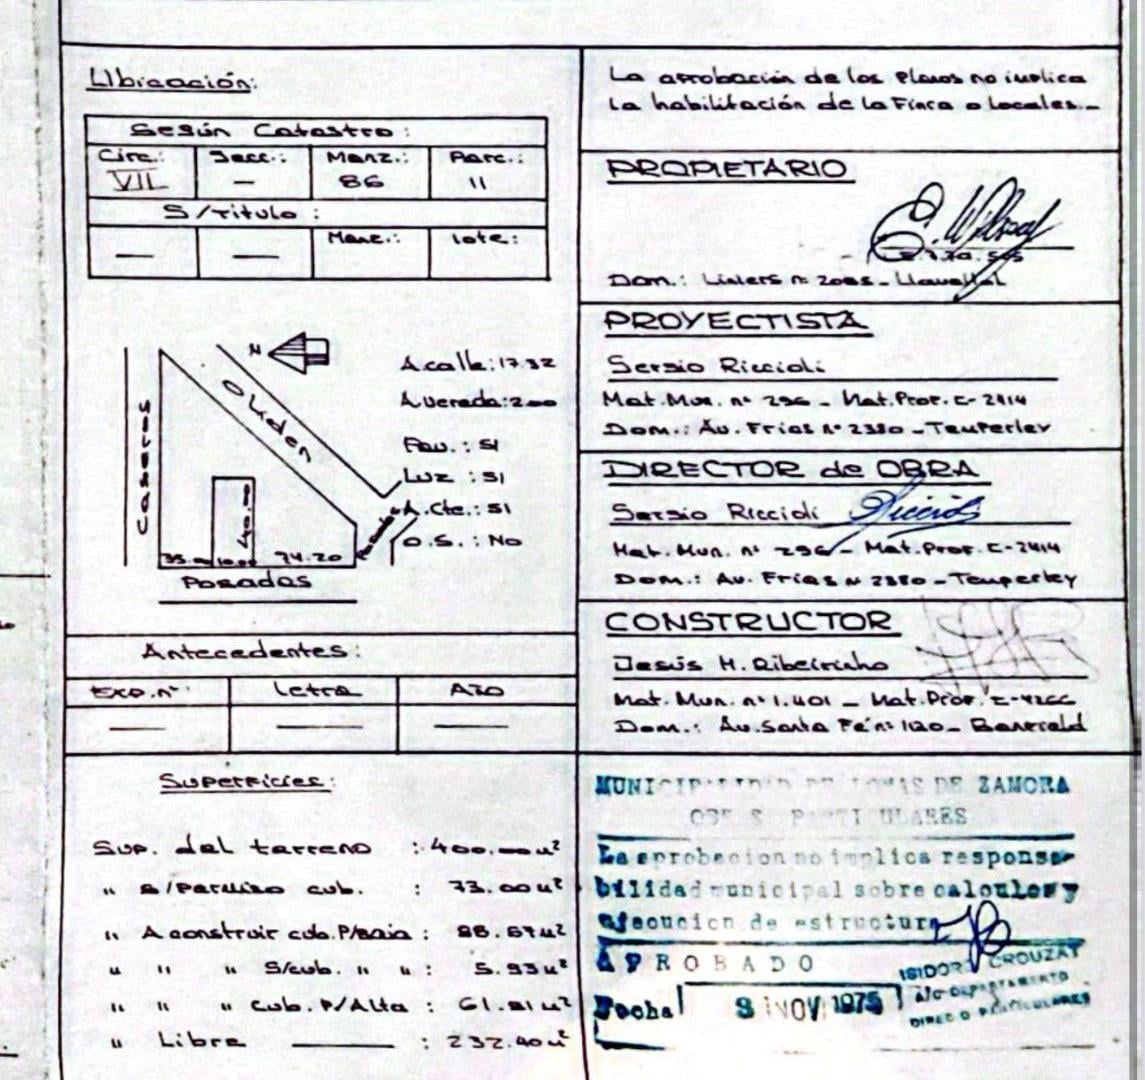 Ubicación:
Según Catastro:
Circ.: Secc.: Manz.: Parc.:
VII — 86 11
S/Título:
Manz.: lote:
— —
N
Caseros
Okden
A calle: 17.32
A vereda: 2.00
Pav.: SI
Luz: SI
A. Cte.: SI
O.S.: No
40.00
10.00 74.20
Posadas
Antecedentes:
Exp. nº Letra Año
— — —
Superficies:
Sup. del terreno : 400.00 m²
" s/permiso cub. : 73.00 m²
" A construir cub. P/Baja : 88.67 m²
" " " S/cub. " " : 5.93 m²
" " " Cub. P/Alta : 61.81 m²
" Libre —— : 232.40 m²
La aprobación de los planos no implica
la habilitación de la Finca o Locales.-
PROPIETARIO
Dom.: Liniers nº - Llavallol
PROYECTISTA
Sergio Riccioli
Mat. Mun. nº 296 - Mat. Prof. C-2414
Dom.: Av. Frías nº 2380 - Temperley
DIRECTOR de OBRA
Sergio Riccioli
Mat. Mun. nº 296 - Mat. Prof. C-2414
Dom.: Av. Frías nº 2380 - Temperley
CONSTRUCTOR
Jesús M. Ribeirinho
Mat. Mun. nº 1.401 - Mat. Prof.
Dom.: Av. Santa Fé nº 1120 - Banfield
MUNICIPALIDAD DE LOMAS DE ZAMORA
OBRAS PARTICULARES
La aprobacion no implica responsa-
bilidad municipal sobre calculos y
ejecucion de estructura
APROBADO
Fecha 3 NOV 1975
ISIDORO CROUZAT
A/C DEPARTAMENTO